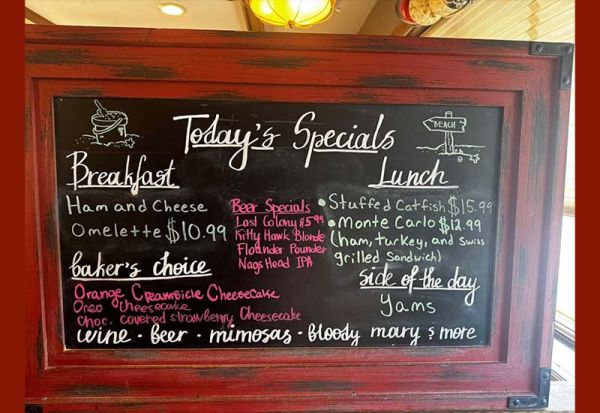 Today's Specials
BEACH
Breakfast
Ham and Cheese
Omelette $10.99
Beer Specials
Lost Colony $5.99
Kitty Hawk Blonde
Flounder Pounder
Nags Head IPA
Lunch
• Stuffed Catfish $15.99
• Monte Carlo $12.99
(ham, turkey, and Swiss
grilled sandwich)
baker's choice
Orange Creamsicle Cheesecake
Oreo Cheesecake
Choc. covered strawberry Cheesecake
Side of the day
Yams
wine • Beer • mimosas • Bloody mary & more